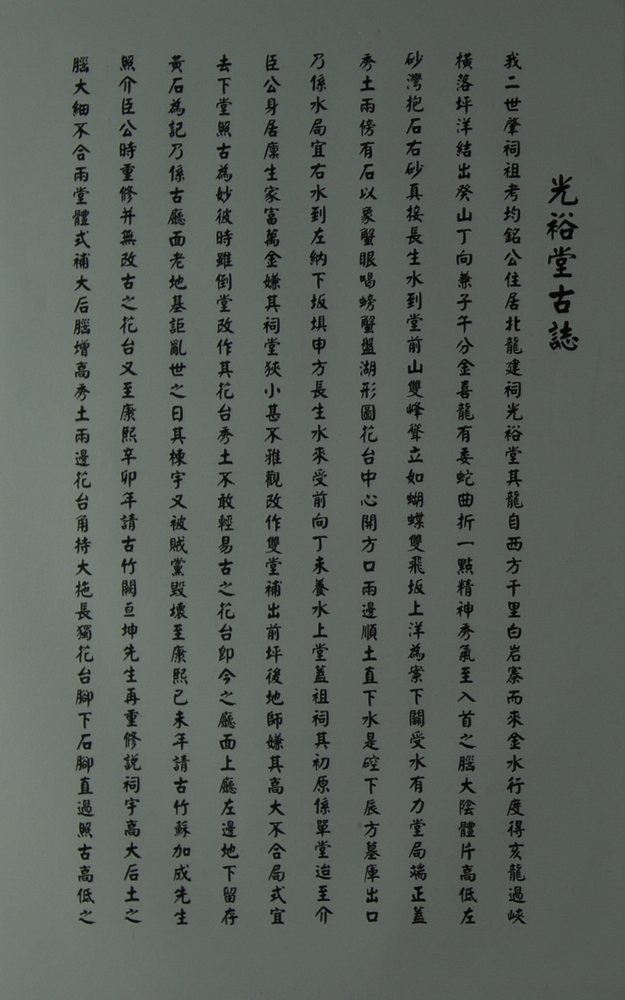 光裕堂古誌
我二世肇祠祖考均銘公住居北龍建祠光裕堂其龍自西方千里白岩寨而來金水行度得亥龍過峽
橫落坪洋結出癸山丁向兼子午分金喜龍有委蛇曲折一點精神秀氣至入首之腦大陰體片高低左
砂灣抱石右砂真接長生水到堂前山雙峰聳立如蝴蝶雙飛坂上洋為案下關受水有力堂局端正蓋
秀土兩傍有石以象蟹眼喝螃蟹盤湖形圖花台中心開方口兩邊順土直下水是硿下辰方墓庫出口
乃係水局宜右水到左納下坂垻申方長生水來受前向丁未養水上堂蓋祖祠其初原係單堂迨至介
臣公身居廩生家富萬金嫌其祠堂狹小甚不雅觀改作雙堂補出前坪後地師嫌其高大不合局式宜
去下堂照古為妙彼時雖倒堂改作其花台秀土不敢輕易古之花台卽今之廳面上廳左邊地下留存
黃石為記乃係古廳面老地基詎亂世之日其棟宇又被賊黨毀壞至康熙己未年請古竹蘇加成先生
照介臣公時重修并無改古之花台又至康熙辛卯年請古竹闕亘坤先生再重修説祠宇高大后土之
腦大細不合兩堂體式補大后腦增高秀土兩邊花台角待大拖長獨花台腳下石腳直過照古高低之